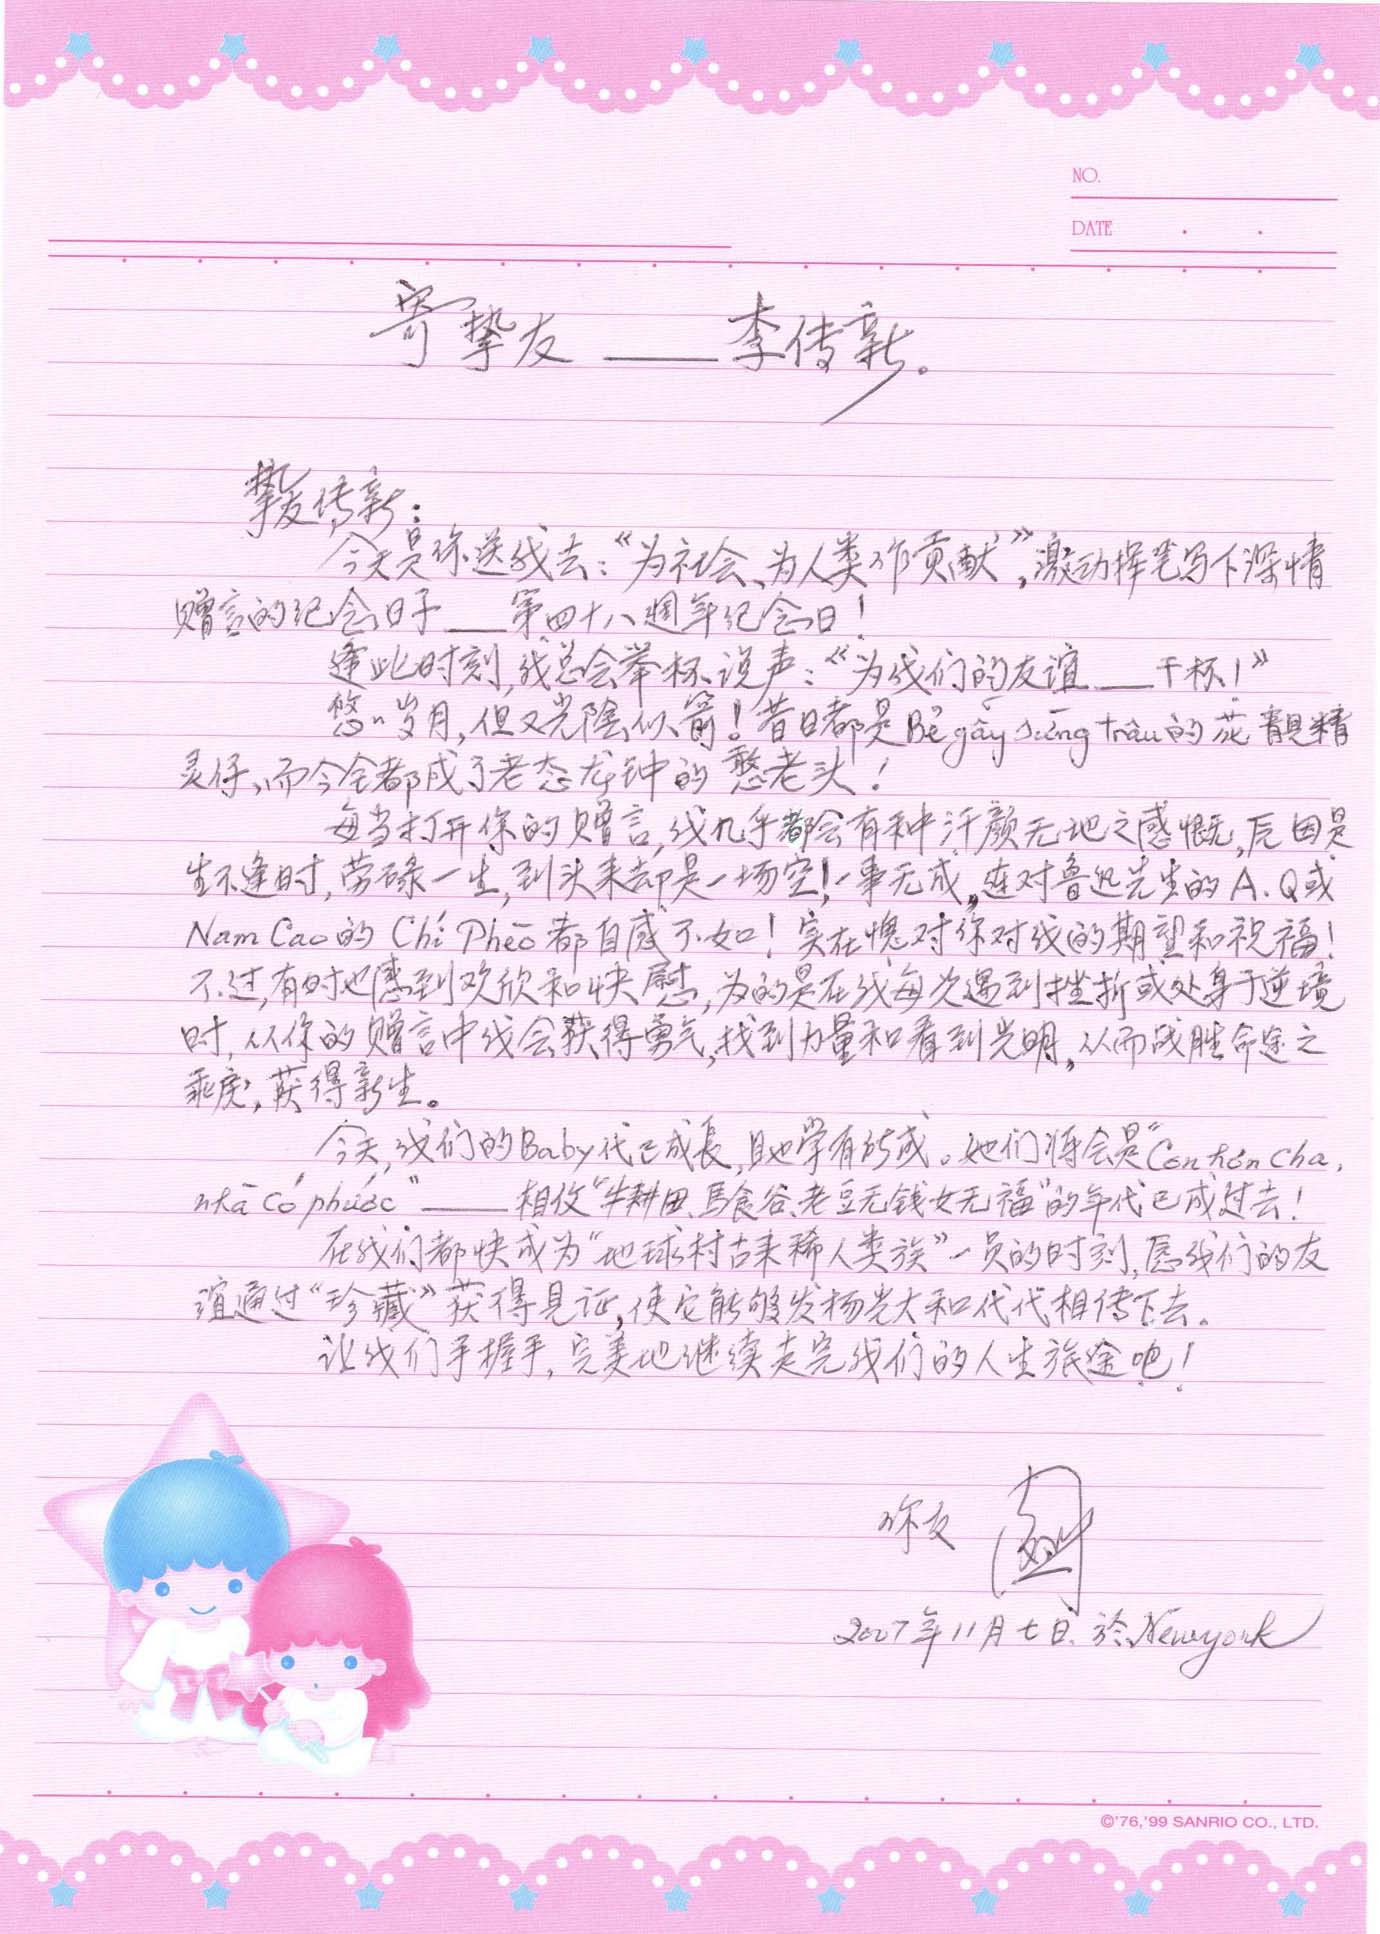 NO.
DATE
寄挚友 ——李传新。
挚友传新:
今天是你送我去:“为社会、为人类作贡献”,激动挥笔写下深情
赠言的纪念日子——第四十八週年纪念日!
逢此时刻,我总会举杯说声:“为我们的友谊——干杯!”
悠〃岁月,但又光陰似箭!昔日都是Bẻ gãy sừng trâu的花靚精
灵仔,而今全都成了老态龙钟的憨老头!
每当打开你的赠言,我几乎都会有种汗颜无地之感慨,原因是
生不逢时,劳碌一生,到头来却是一场空!一事无成,连对鲁迅先生的A.Q或
Nam Cao的Chí Phèo都自感不如!实在愧对你对我的期望和祝福!
不过,有时也感到欢欣和快慰,为的是在我每次遇到挫折或处身于逆境
时,从你的赠言中我会获得勇气,找到力量和看到光明,从而战胜命途之
乖戾,获得新生。
今天,我们的Baby代已成長,且也学有所成。她们将会是“Con hơn cha,
nhà có phước”——相佼“牛耕田、馬食谷、老豆无钱女无福”的年代已成过去!
在我们都快成为“地球村古来稀人类族”一员的时刻,愿我们的友
谊通过“珍藏”获得見证,使它能够发扬光大和代代相传下去。
让我们手握手,完美地继续走完我们的人生旅途吧!
你友
2007年11月七日.於Newyork
©'76,'99 SANRIO CO., LTD.